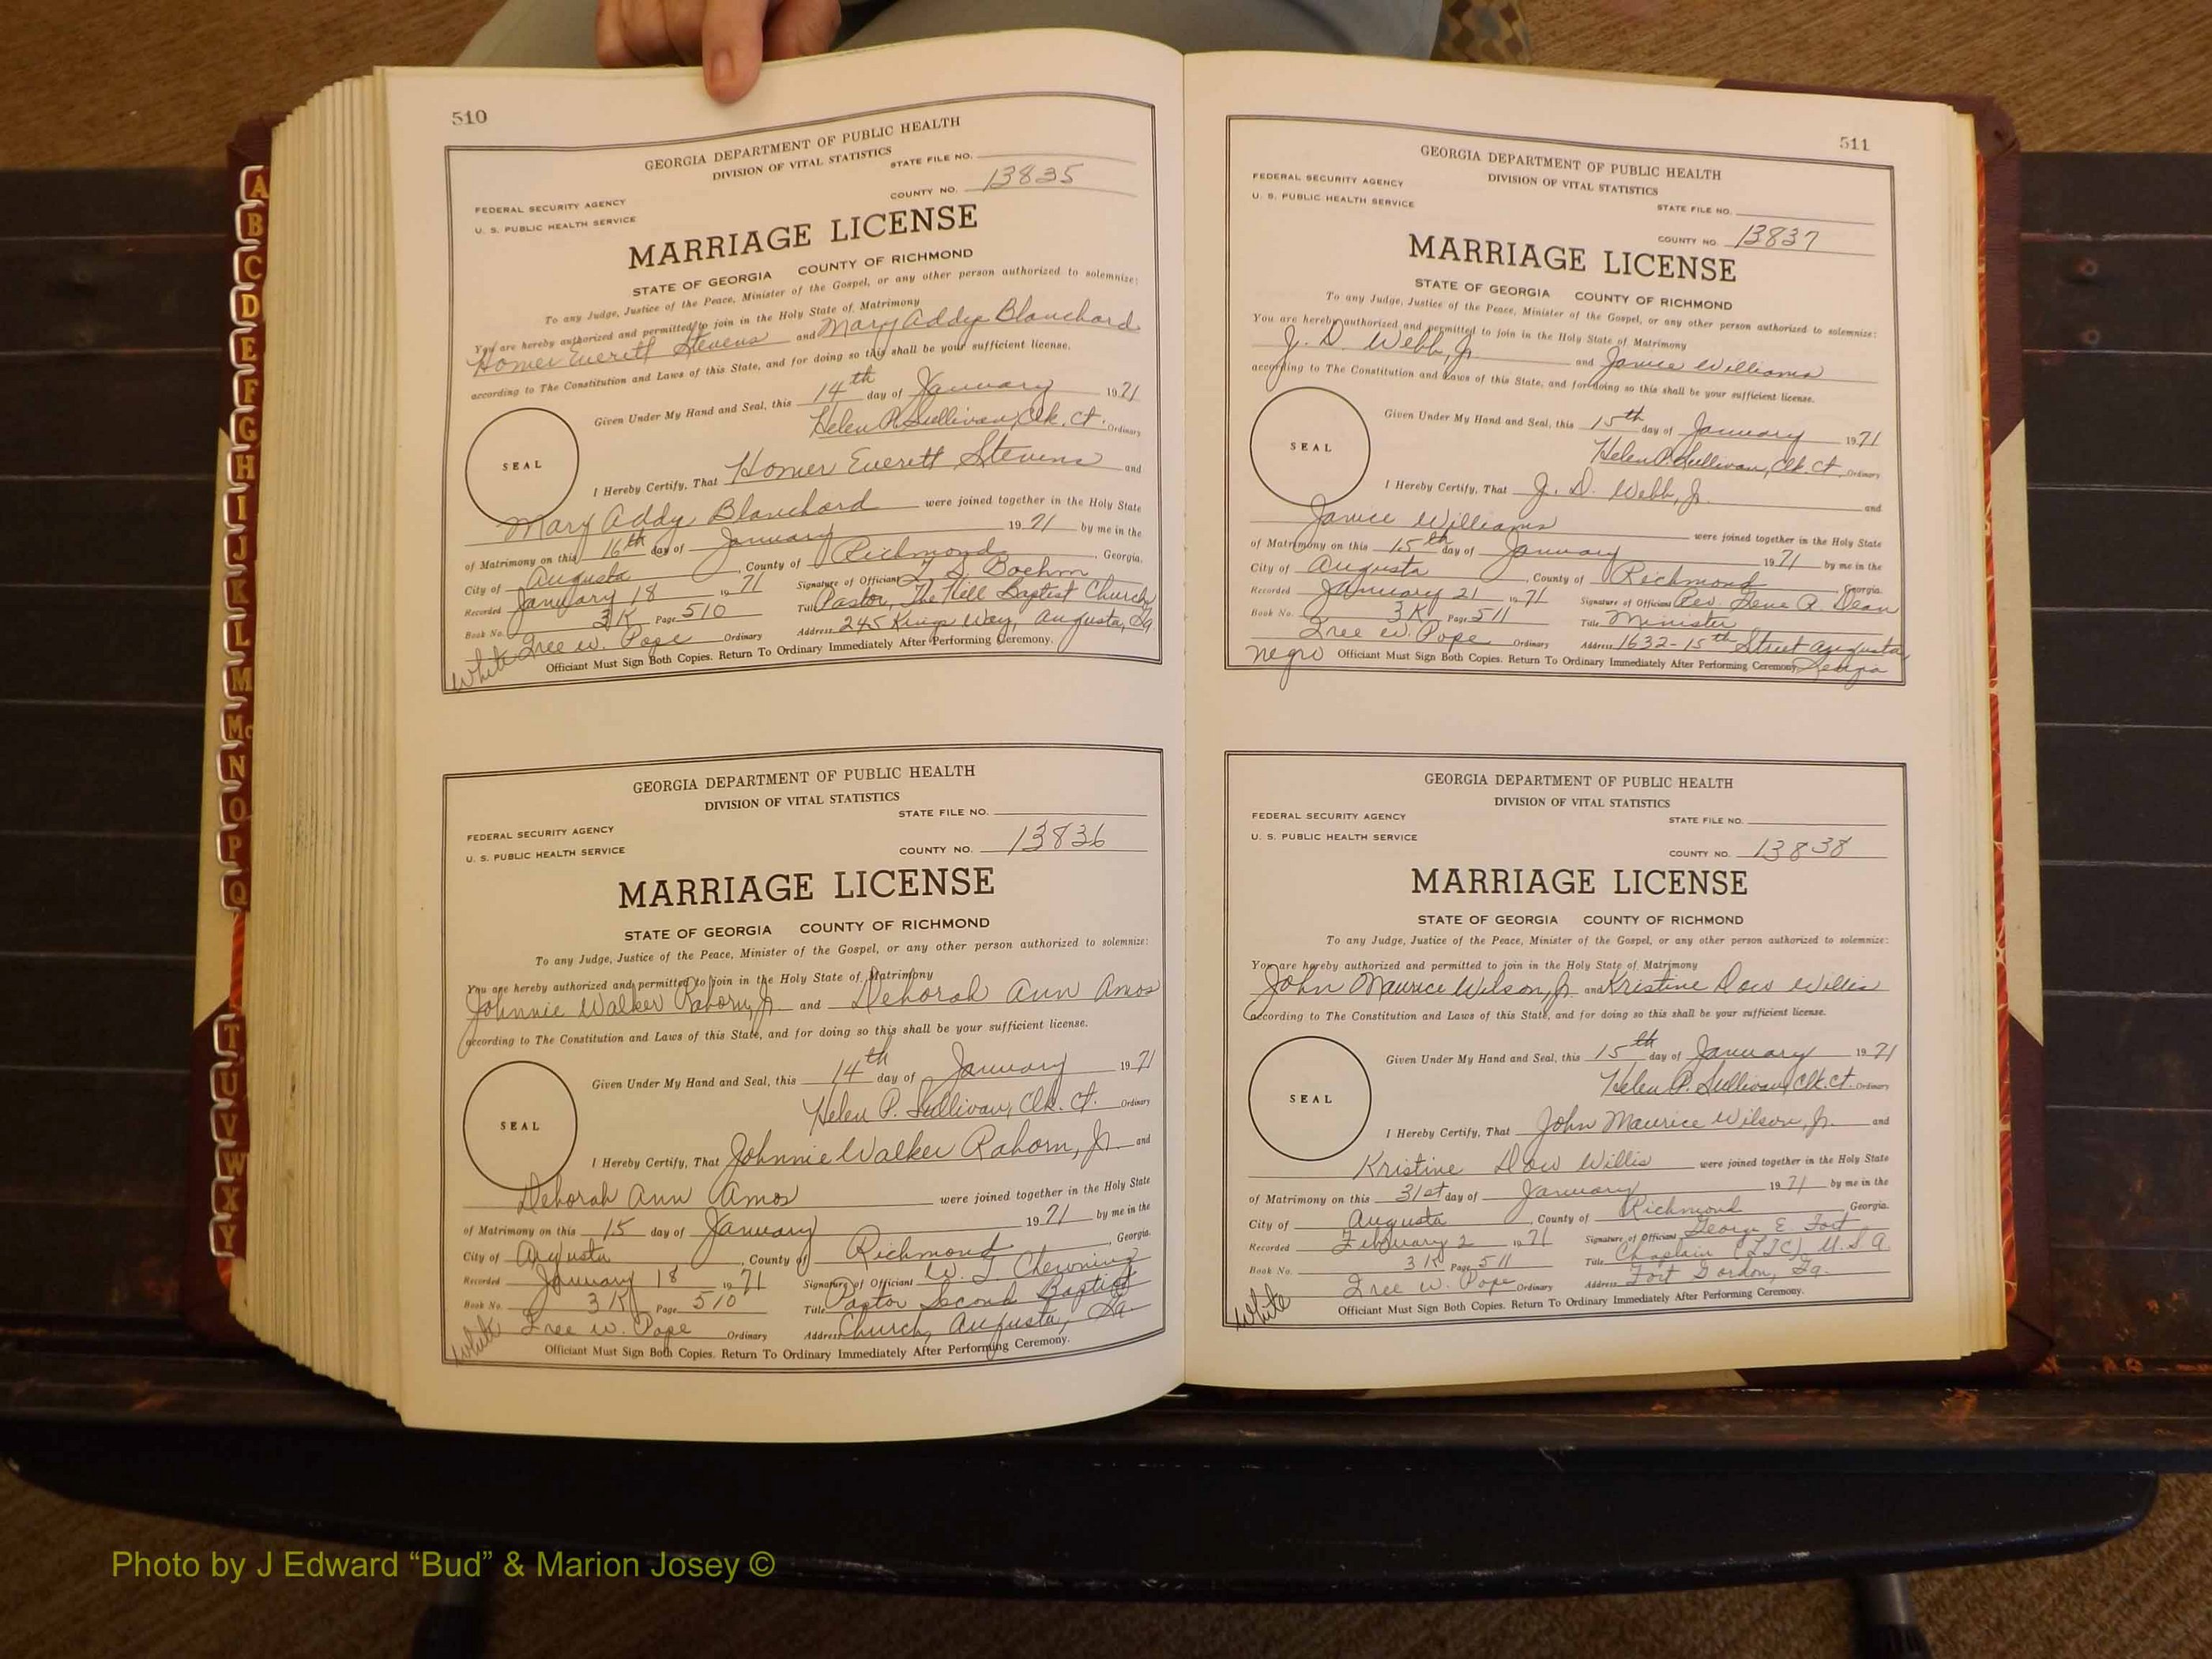 510
GEORGIA DEPARTMENT OF PUBLIC HEALTH
DIVISION OF VITAL STATISTICS
STATE FILE NO.
COUNTY NO. 13835
FEDERAL SECURITY AGENCY
U. S. PUBLIC HEALTH SERVICE
MARRIAGE LICENSE
STATE OF GEORGIA COUNTY OF RICHMOND
To any Judge, Justice of the Peace, Minister of the Gospel, or any other person authorized to solemnize:
You are hereby authorized and permitted to join in the Holy State of Matrimony
Homer Everett Stevens and Mary Addy Blanchard
according to The Constitution and Laws of this State, and for doing so this shall be your sufficient license.
Given Under My Hand and Seal, this 14th day of January 1971
Helen P. Sullivan, Clk. Ct. Ordinary
SEAL
I Hereby Certify, That Homer Everett Stevens and
Mary Addy Blanchard were joined together in the Holy State
of Matrimony on this 16th day of January 1971 by me in the
City of Augusta, County of Richmond, Georgia.
Recorded January 18 1971 Signature of Officiant Boehm
Book No. 3K Page 510 Title Pastor, The Hill Baptist Church
Free W. Pope Ordinary Address 245 Kings Way, Augusta, Ga.
White Officiant Must Sign Both Copies. Return To Ordinary Immediately After Performing Ceremony.
GEORGIA DEPARTMENT OF PUBLIC HEALTH
DIVISION OF VITAL STATISTICS
STATE FILE NO.
FEDERAL SECURITY AGENCY
U. S. PUBLIC HEALTH SERVICE
COUNTY NO. 13836
MARRIAGE LICENSE
STATE OF GEORGIA COUNTY OF RICHMOND
To any Judge, Justice of the Peace, Minister of the Gospel, or any other person authorized to solemnize:
You are hereby authorized and permitted to join in the Holy State of Matrimony
Johnnie Walker Rahorn, Jr. and Deborah Ann Amos
according to The Constitution and Laws of this State, and for doing so this shall be your sufficient license.
Given Under My Hand and Seal, this 14th day of January 1971
Helen P. Sullivan, Clk. Ct. Ordinary
SEAL
I Hereby Certify, That Johnnie Walker Rahorn, Jr. and
Deborah Ann Amos were joined together in the Holy State
of Matrimony on this 15 day of January 1971 by me in the
City of Augusta, County of Richmond, Georgia.
Recorded January 18 1971 Signature of Officiant W. T. Chewning
Book No. 3K Page 510 Title Pastor Second Baptist
Free W. Pope Ordinary Address Church, Augusta, Ga
White Officiant Must Sign Both Copies. Return To Ordinary Immediately After Performing Ceremony.
511
GEORGIA DEPARTMENT OF PUBLIC HEALTH
DIVISION OF VITAL STATISTICS
FEDERAL SECURITY AGENCY
U. S. PUBLIC HEALTH SERVICE
STATE FILE NO.
COUNTY NO. 13837
MARRIAGE LICENSE
STATE OF GEORGIA COUNTY OF RICHMOND
To any Judge, Justice of the Peace, Minister of the Gospel, or any other person authorized to solemnize:
You are hereby authorized and permitted to join in the Holy State of Matrimony
J. D. Webb, Jr. and Janice Williams
according to The Constitution and Laws of this State, and for doing so this shall be your sufficient license.
Given Under My Hand and Seal, this 15th day of January 1971
Helen P. Sullivan, Clk. Ct. Ordinary
SEAL
I Hereby Certify, That J. D. Webb, Jr. and
Janice Williams were joined together in the Holy State
of Matrimony on this 15th day of January 1971 by me in the
City of Augusta, County of Richmond Georgia.
Recorded January 21 1971 Signature of Officiant Rev. Gene R. Dean
Book No. 3K Page 511 Title Minister
Free W. Pope Ordinary Address 1632-15th Street Augusta
Negro Officiant Must Sign Both Copies. Return To Ordinary Immediately After Performing Ceremony. Georgia
GEORGIA DEPARTMENT OF PUBLIC HEALTH
DIVISION OF VITAL STATISTICS
FEDERAL SECURITY AGENCY
STATE FILE NO.
U. S. PUBLIC HEALTH SERVICE
COUNTY NO. 13838
MARRIAGE LICENSE
STATE OF GEORGIA COUNTY OF RICHMOND
To any Judge, Justice of the Peace, Minister of the Gospel, or any other person authorized to solemnize:
You are hereby authorized and permitted to join in the Holy State of Matrimony
John Maurice Wilson, Jr. and Kristine Dow Willis
according to The Constitution and Laws of this State, and for doing so this shall be your sufficient license.
Given Under My Hand and Seal, this 15th day of January 1971
Helen P. Sullivan, Clk. Ct. Ordinary
SEAL
I Hereby Certify, That John Maurice Wilson, Jr. and
Kristine Dow Willis were joined together in the Holy State
of Matrimony on this 31st day of January 1971 by me in the
City of Augusta, County of Richmond Georgia.
Recorded February 2 1971 Signature of Officiant George E. Fort
Book No. 3K Page 511 Title Chaplain (LTC), U.S.A.
Free W. Pope Ordinary Address Fort Gordon, Ga.
White Officiant Must Sign Both Copies. Return To Ordinary Immediately After Performing Ceremony.
A
B
C
D
E
F
G
H
I
J
K
L
M
Mc
N
O
P
Q
T
U
V
W
X
Y
Photo by J Edward “Bud” & Marion Josey ©